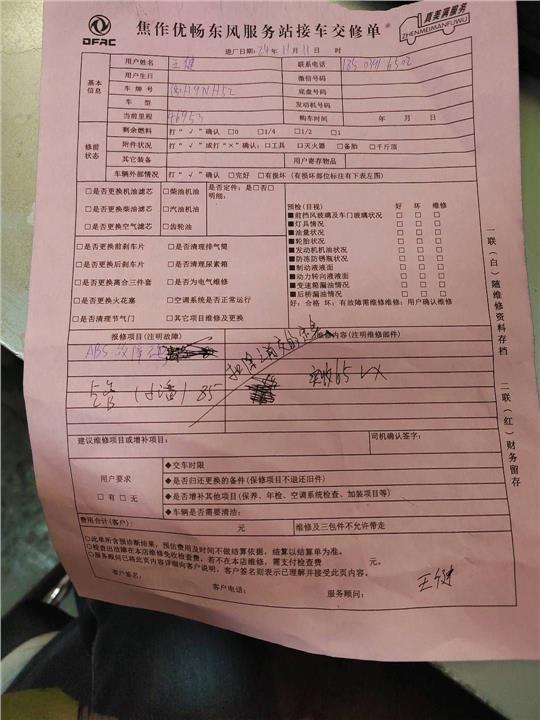 DFAC
焦作优畅东风服务站接车交修单
真美满服务
ZHENMEIMANFUWU
进厂日期:24年11月11日 时
基本信息
用户姓名 王健 联系电话
用户生日 微信号码
车牌号 底盘号码
车型 发动机号码
当前里程 46953 购车时间 年 月 日
修前状态
剩余燃料 打“√”确认 □0 □1/4 □1/2 □1
附件状况 打“√”或打“×”确认:□工具 □灭火器 □备胎 □千斤顶
其它装备 用户寄存物品
车辆外部情况 打“√”确认 □完好 □有损坏(有损坏部位标注有下表左图)
□是否更换机油滤芯 □柴油机油 是否定件:是□否□
□是否更换柴油滤芯 □汽油机油 明细:
□是否更换空气滤芯 □齿轮油
□是否更换前刹车片 □是否清理排气筒
□是否更换后刹车片 □是否清理尿素箱
□是否更换离合三件套 □是否为电气维修
□是否更换火花塞 □空调系统是否正常运行
□是否清理节气门 □其它项目维修及更换
预检(目视) 好 坏 维修
■前挡风玻璃及车门玻璃状况 □ □ □
■灯具情况 □ □ □
■油量状况 □ □ □
■轮胎状况 □ □ □
■发动机机油状况 □ □ □
■防冻防锈瓶状况 □ □ □
■制动液液面 □ □ □
■动力转向液液面 □ □ □
■变速箱漏油情况 □ □ □
■后桥漏油情况 □ □ □
好:合格 坏:有故障需维修维修:用户确认维修
报修项目(注明故障) 维修内容(注明维修部件)
ABS故障
85
实收65 WX
建议维修项目或增补项目: 司机确认签字:
用户要求
□有 □无
◆交车时限
◆是否归还更换的备件(保修项目不退还旧件)
◆是否增补其他项目(保养、年检、空调系统检查、加装项目等)
◆车辆是否需要清洁:
费用合计(客户): 元 维修及三包件不允许带走
○此单所含预诊断结果,预估费用及时间不做结算依据,结算以结算单为准。
○检查出故障在本店维修免收检查费,若不在本店维修,需支付检查费 元。
○服务顾问已将此页内容详细向客户说明,客户签名则表示已理解并接受此页内容。
客户签名: 客户电话: 服务顾问: 王健
一联(白)随维修资料存档
二联(红)财务留存